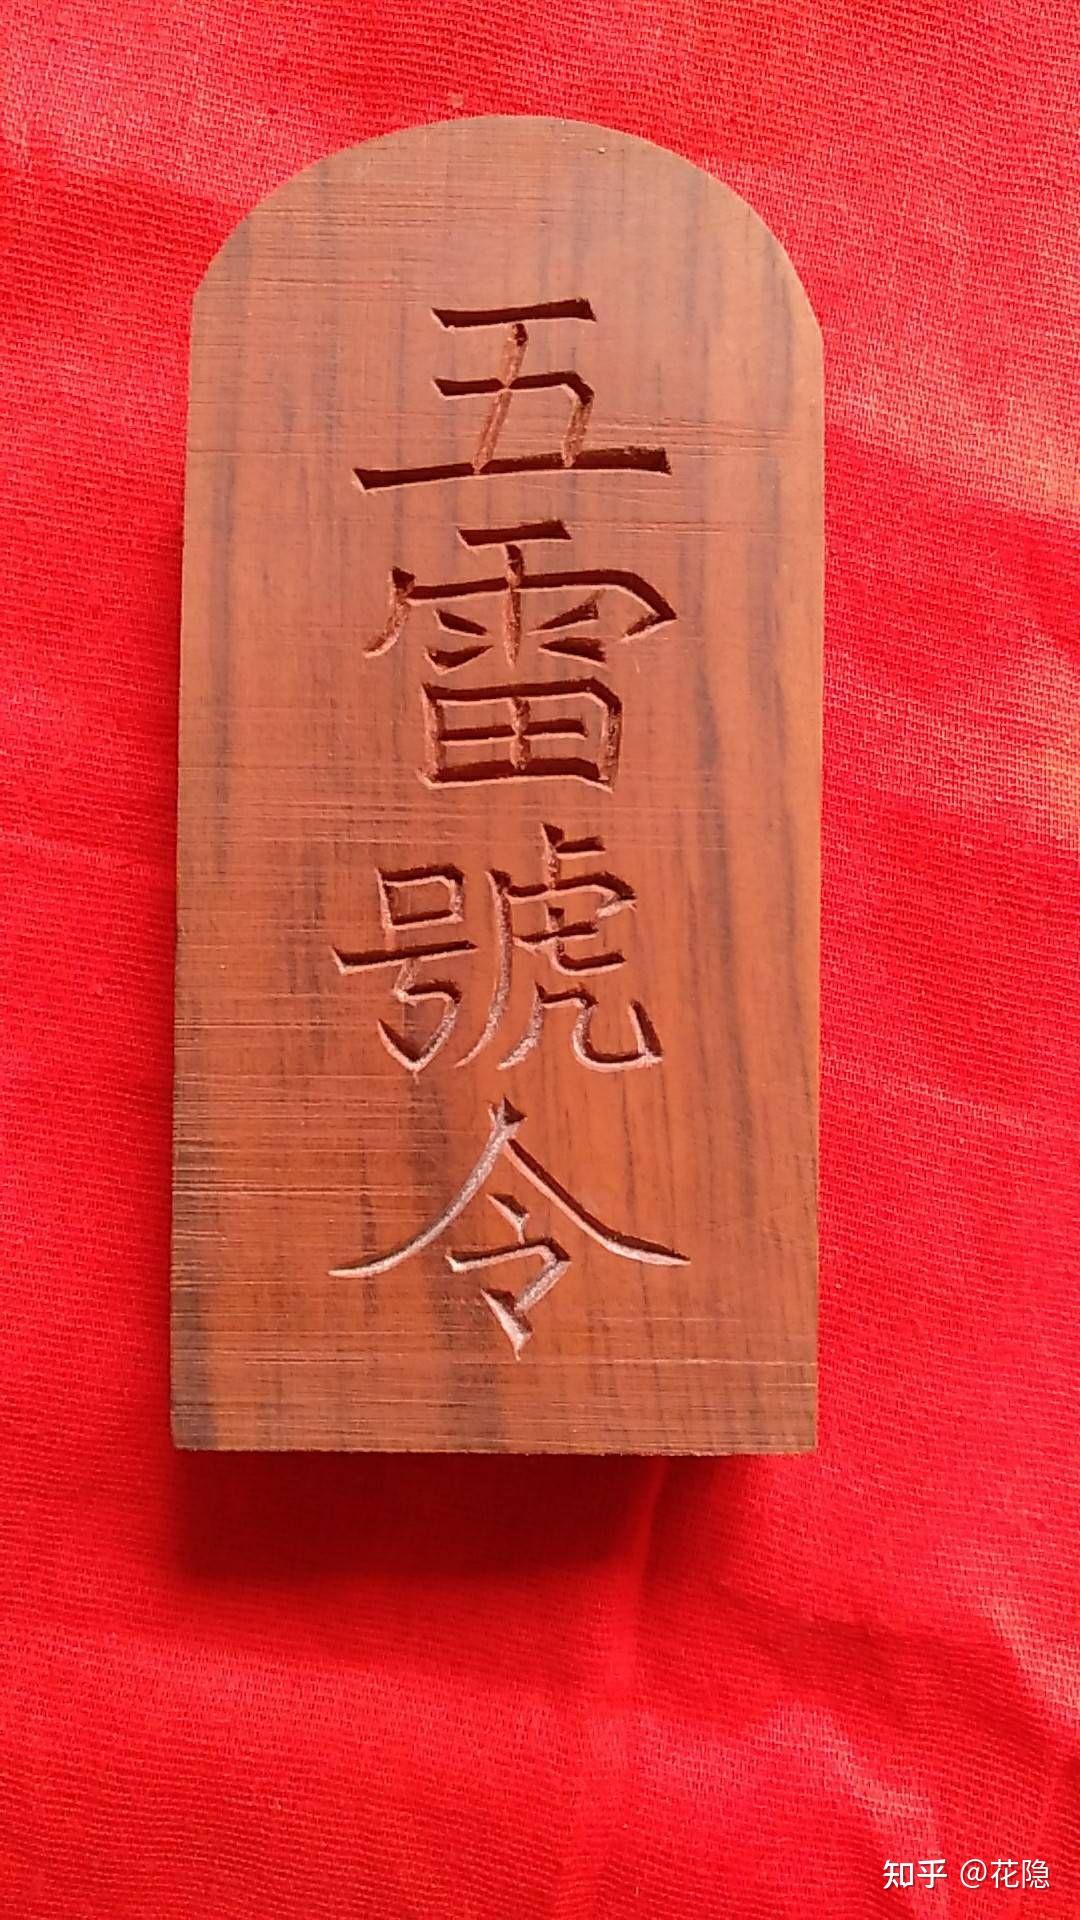 五雷號令
知乎 @花隐